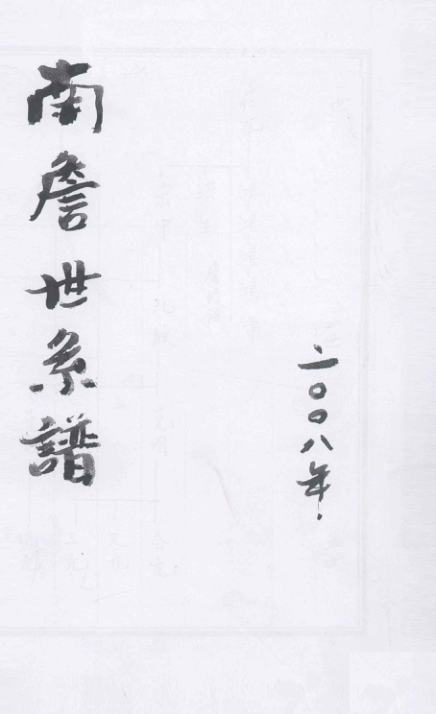 南詹世系譜
二〇〇八年.